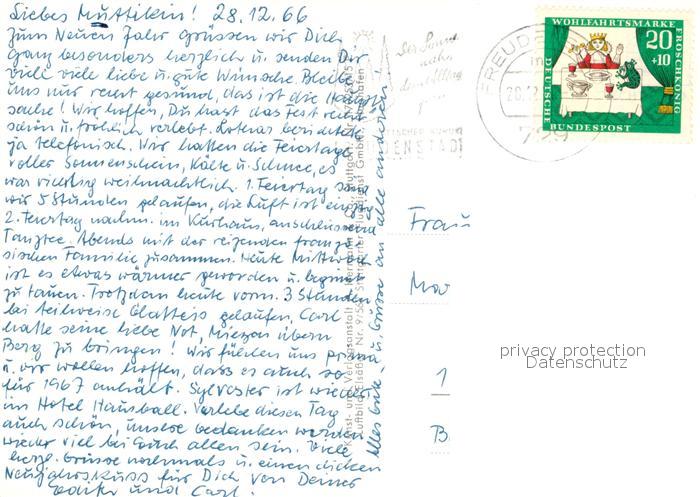 Liebes Muttilein! 28.12.66
Zum Neuen Jahr grüssen wir Dich
ganz besonders herzlich u. senden Dir
viele viele liebe u. gute Wünsche. Bleibe
uns nur recht gesund, das ist die Haupt-
sache! Wir hoffen, Du hast das Fest recht
schön u. fröhlich verlebt. Lothar berichtete
ja telefonisch. Wir hatten die Feiertage
voller Sonnenschein, Kälte u. Schnee, es
war richtig weihnachtlich. 1. Feiertag sind
wir 5 Stunden gelaufen, die Luft ist einzig
2. Feiertag nachm. im Kurhaus, anschliessend
Tanztee. Abends mit der reizenden franzö-
sischen Familie zusammen. Heute Mittwoch
ist es etwas wärmer geworden u. beginnt
zu tauen. Trotzdem heute vorm. 3 Stunden
bei teilweise Glatteis gelaufen, Carl
hatte seine liebe Not, Miezen übern
Berg zu bringen! Wir fühlen uns prima
u. wir wollen hoffen, dass es auch so
für 1967 anhält. Sylvester ist wieder
im Hotel Hausball. Verlebe diesen Tag
auch schön, unsere Gedanken werden
wieder viel bei Euch allen sein. Viele
herzl. Grüsse nochmals u. einen dicken
Neujahrskuss für Dich von Deiner
Edith und Carl.
Alles Gute u. Grüsse an alle anderen
Kunst- und Verlagsanstalt
Stuttgart
Luftbild Elsäßer Nr. 9/56
Stuttgarter Flugdienst GmbH
Der Sonne
näher
dem Alltag
FREUDE
28.12
729
DENSTADT
WOHLFAHRTSMARKE
FROSCHKÖNIG
20
+10
DEUTSCHE
BUNDESPOST
Frau
Mar
1
B
privacy protection
Datenschutz